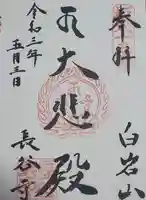 奉拝
白岩山
大悲殿
長谷寺
令和三年
五月三日